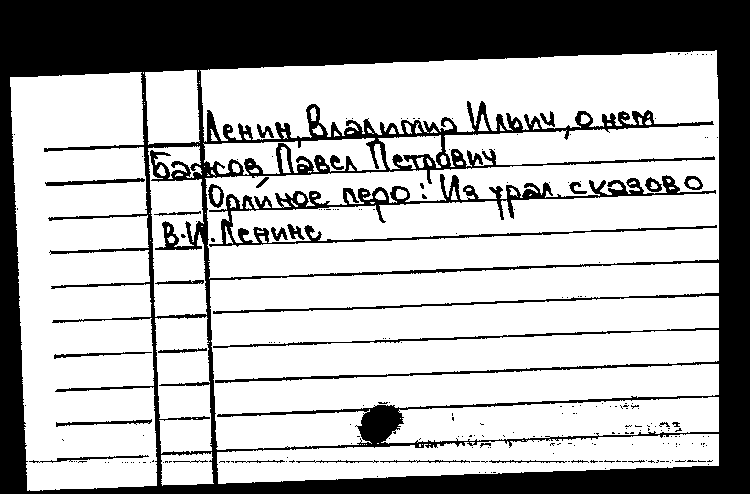 Ленин, Владимир Ильич, о нем
Бажов Павел Петрович
Орлиное перо: Из урал. сказов о
В.И. Ленине